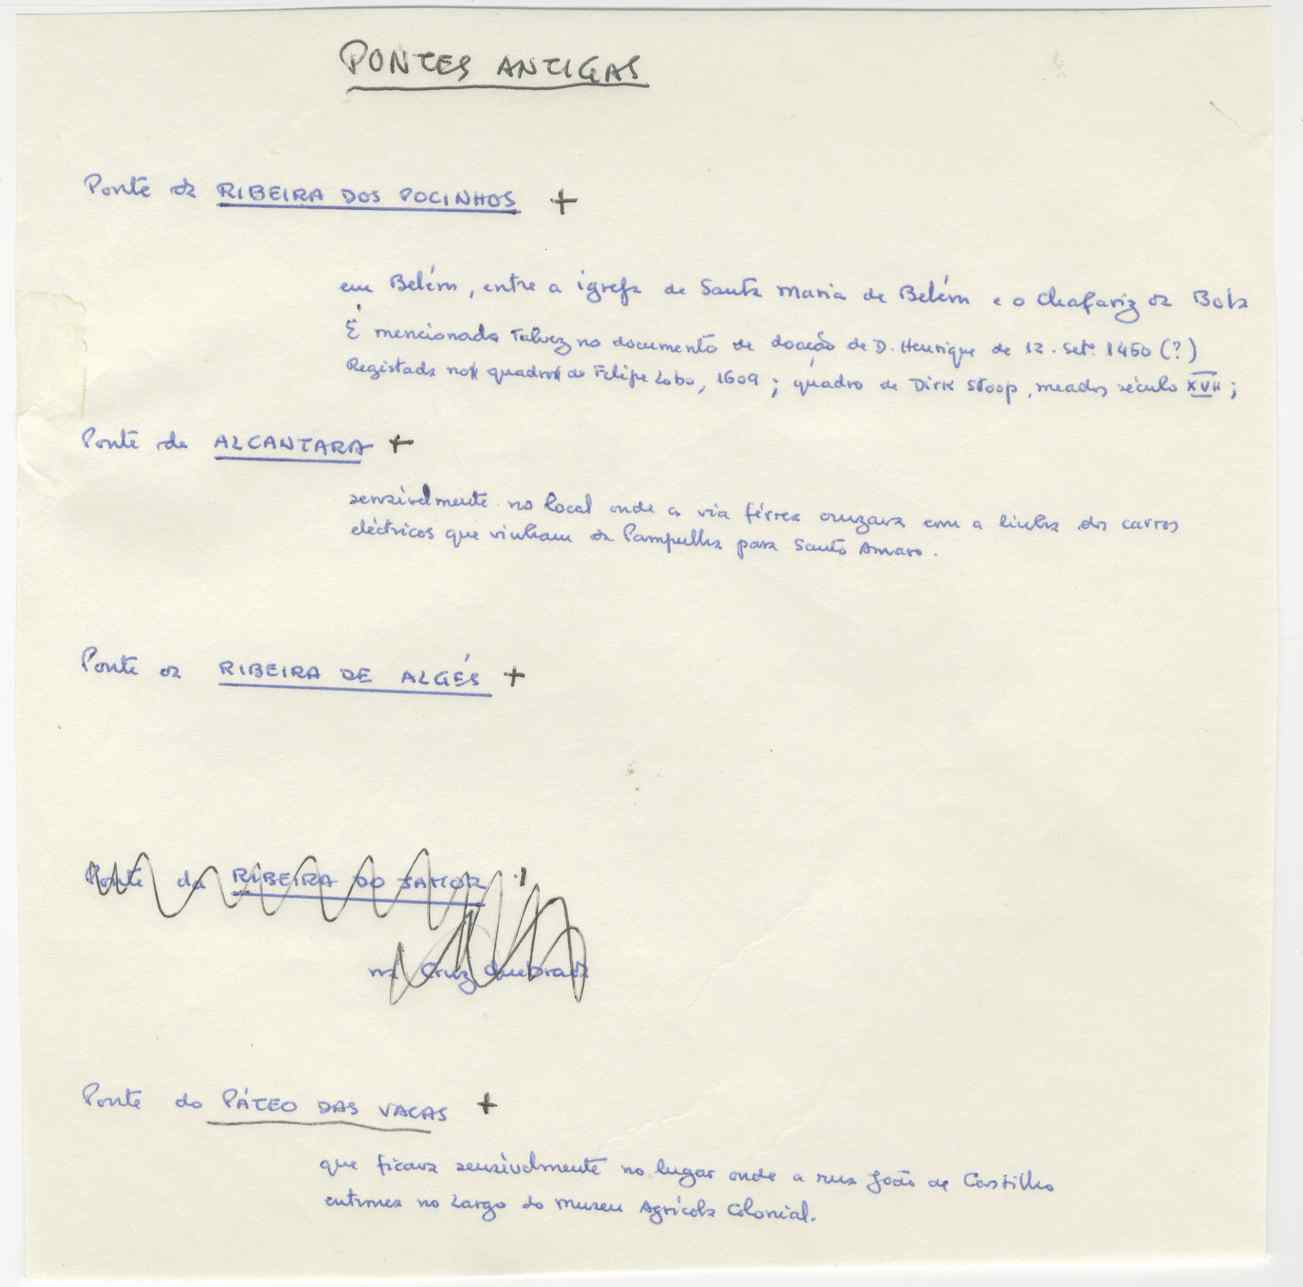 PONTES ANTIGAS
Ponte da RIBEIRA DOS POCINHOS +
em Belém, entre a igreja de Santa Maria de Belém e o Chafariz da Bola
É mencionada talvez no documento de doação de D. Henrique de 12. Setº 1460 (?)
Registada no quadro de Felipe Lobo, 1609 ; quadro de Dirk Stoop, meados século XVII ;
Ponte de ALCANTARA +
sensivelmente no local onde a via férrea cruzava com a linha dos carros
eléctricos que vinham da Pampulha para Santo Amaro.
Ponte da RIBEIRA DE ALGÉS +
Ponte da RIBEIRA DO JAMOR
na Cruz Quebrada
Ponte do PÁTEO DAS VACAS +
que ficava sensivelmente no lugar onde a rua João de Castilho
entronca no Largo do Museu Agrícola Colonial.